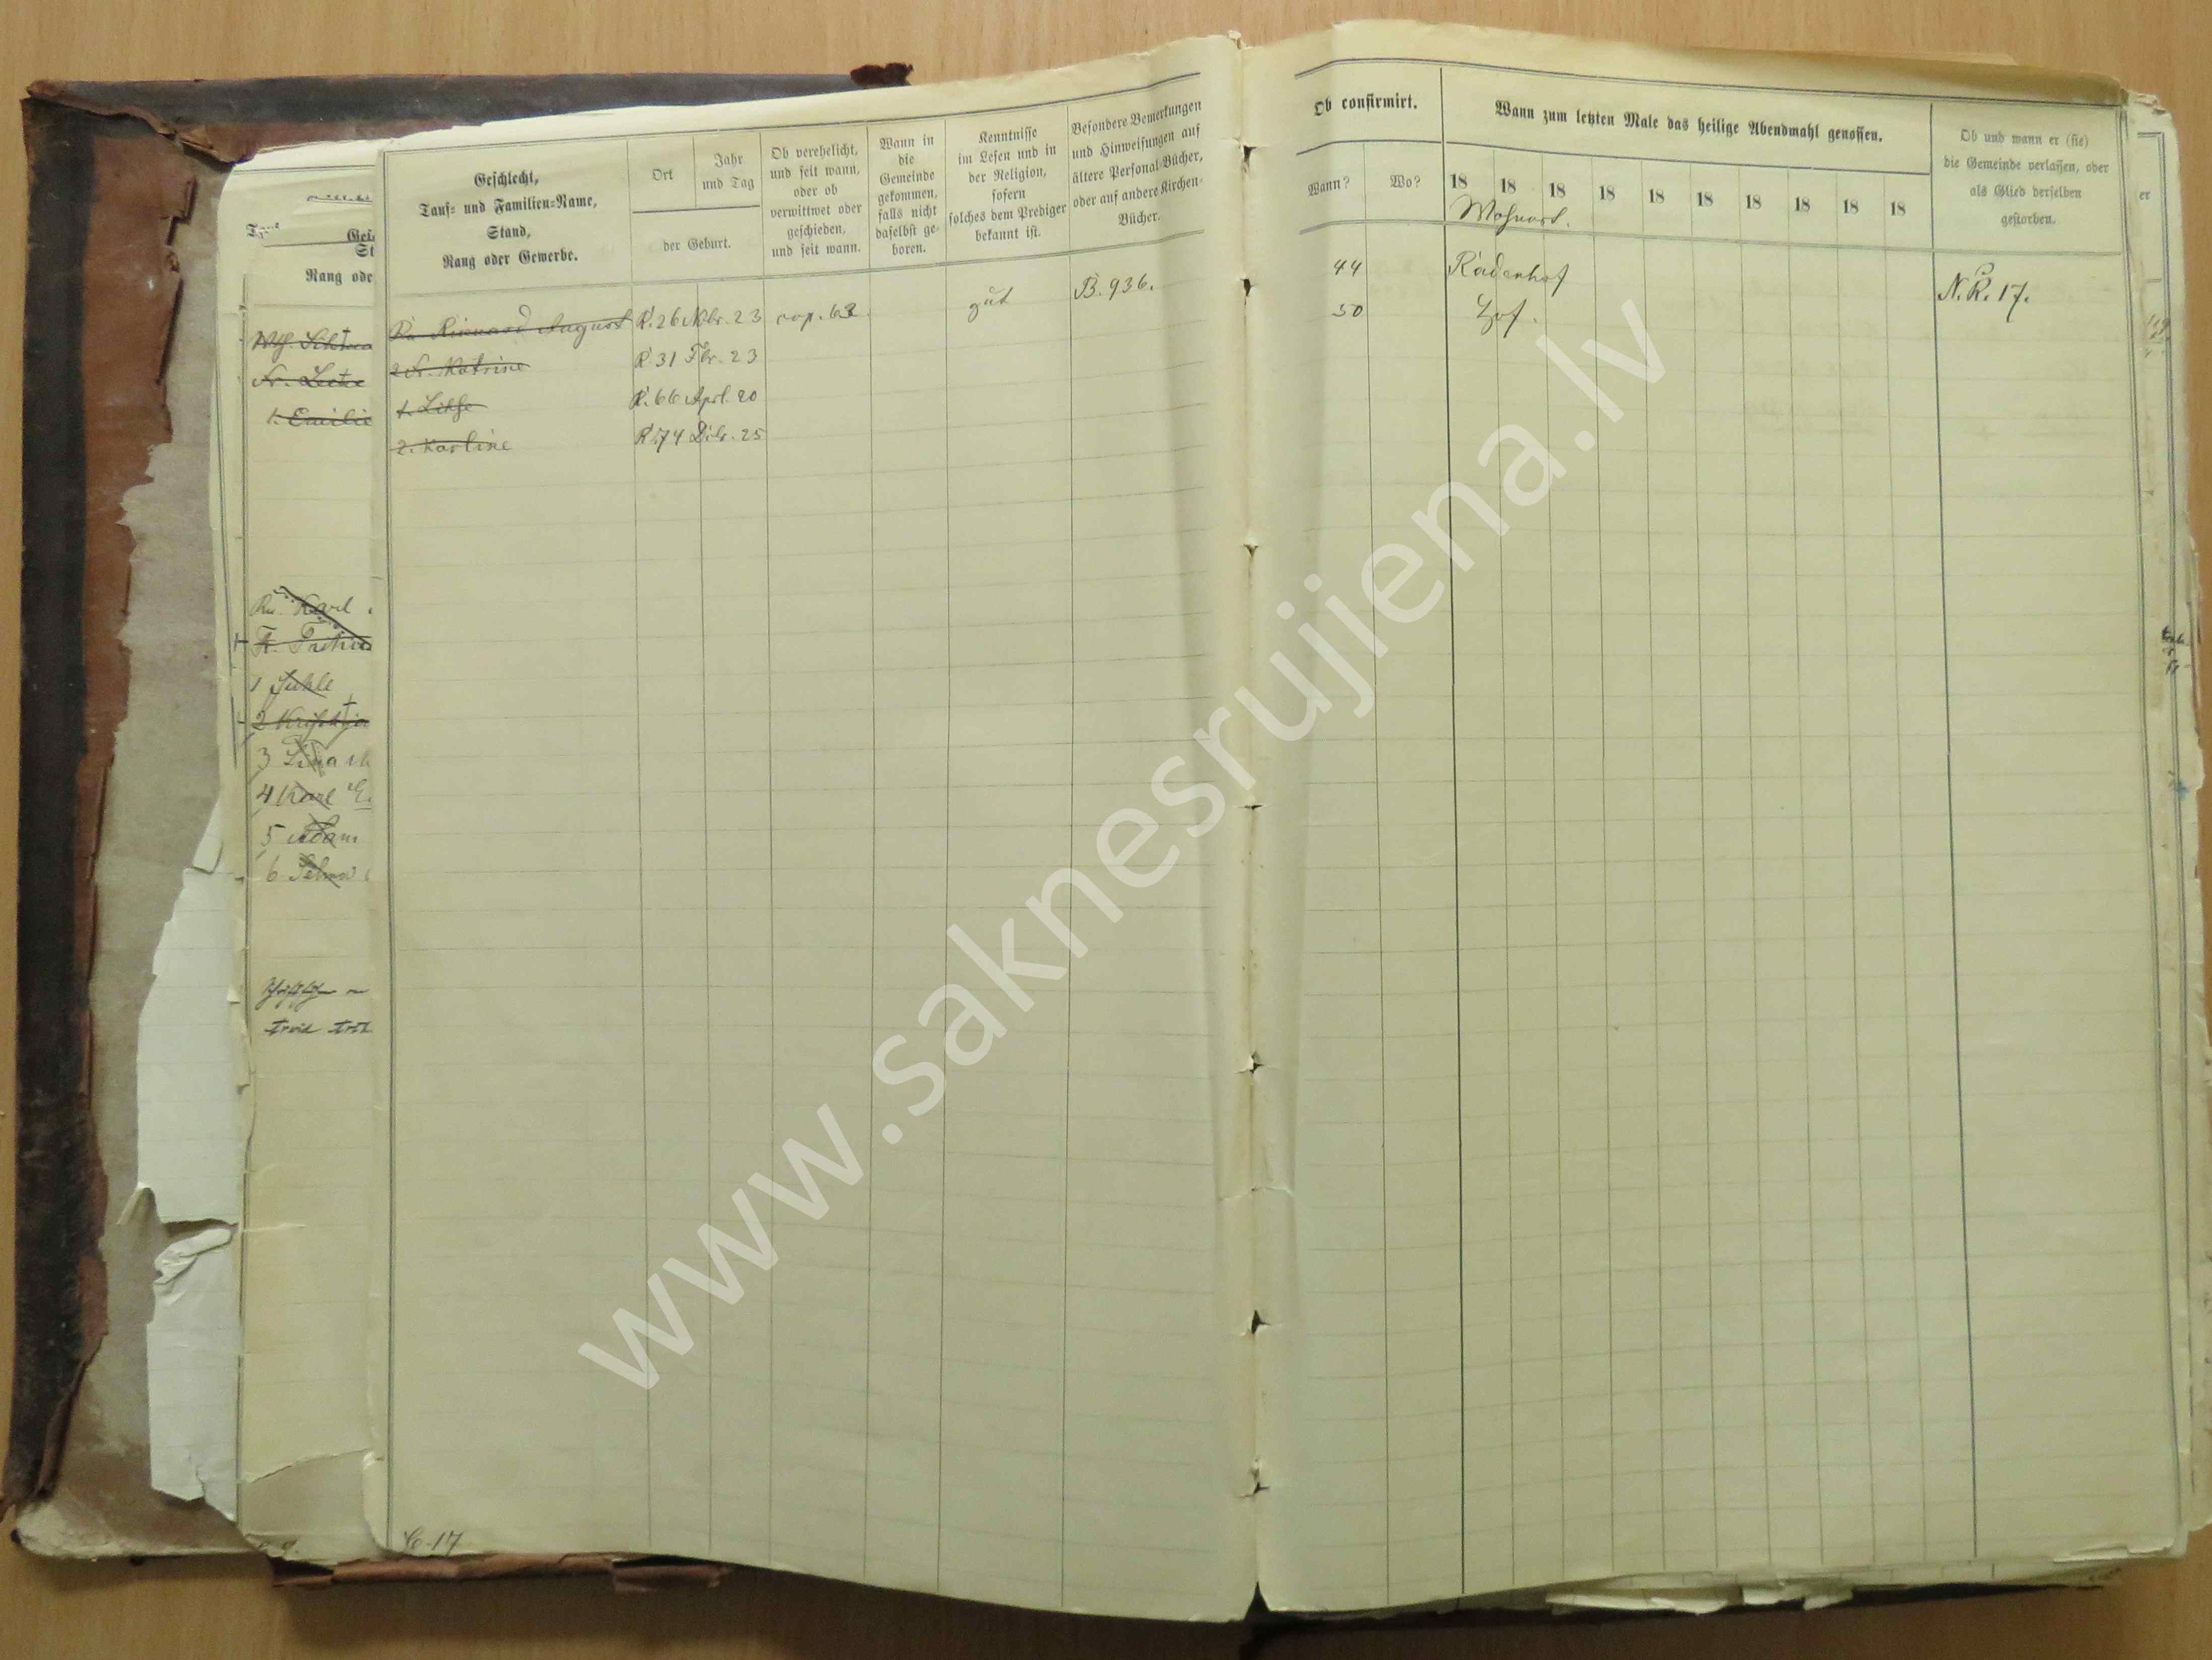 Geschlecht,
Tauf= und Familien=Name,
Stand,
Rang oder Gewerbe.
Ort
Jahr
und Tag
der Geburt.
Ob verehelicht,
und seit wann,
oder ob
verwittwet oder
geschieden,
und seit wann.
Wann in
die
Gemeinde
gekommen,
falls nicht
daselbst ge-
boren.
Kenntnisse
im Lesen und in
der Religion,
sofern
solches dem Prediger
bekannt ist.
Besondere Bemerkungen
und Hinweisungen auf
ältere Personal-Bücher,
oder auf andere Kirchen-
Bücher.
August R. 26 Nbr. 23 cop. 62. gut B. 936.
2 Fr. Katrine R 31 Fbr. 23
1. Lihse R. 66 Aprl. 20
2. Karline R 74 Dcbr. 25
C. 17
Ob confirmirt.
Wann?
Wo?
Wann zum letzten Male das heilige Abendmahl genossen.
18 18 18 18 18 18 18 18 18 18
Wohnort.
Ob und wann er (sie)
die Gemeinde verlassen, oder
als Glied derselben
gestorben.
44 Radenhof N. R. 17.
50 Hof.
Rang ode
1. Emilie
Karl
1 Juhle
3
4 Karl
5 Adam
6
er
www.saknesrujiena.lv